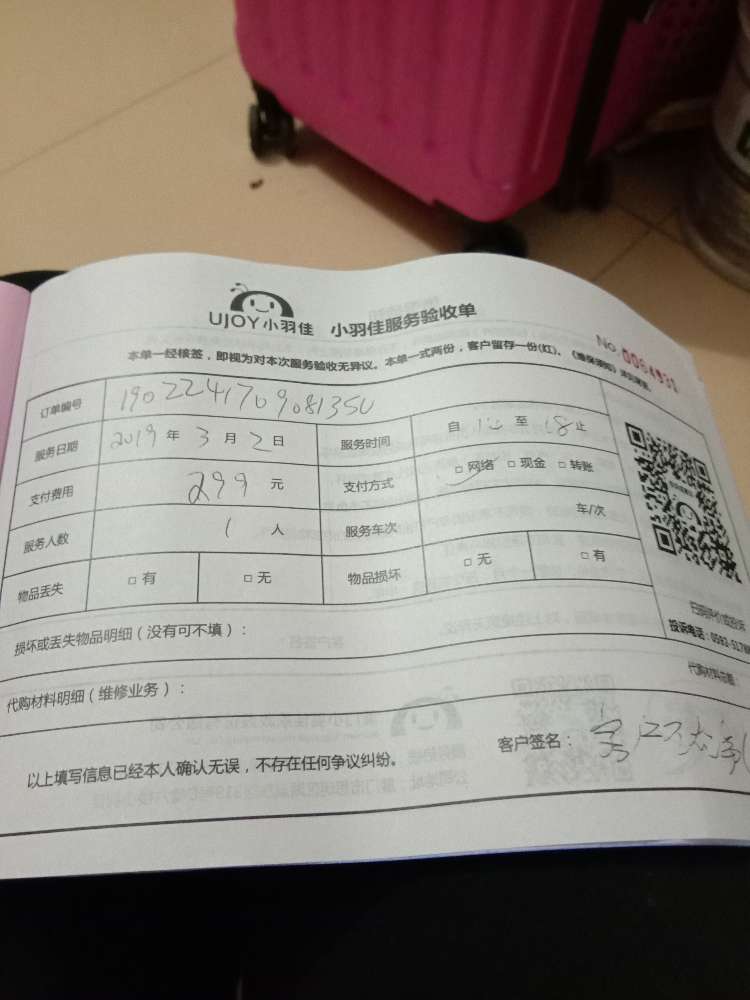 UJOY小羽佳 小羽佳服务验收单
No.
本单一经核签，即视为对本次服务验收无异议。本单一式两份，客户留存一份(红)、《维保须知》详见背面。
订单编号
服务日期 2019 年 3 月 2 日 服务时间 自 至 18 止
支付费用 299 元 支付方式 □ 网络 □ 现金 □ 转账
服务人数 1 人 服务车次 车/次
物品丢失 □ 有 □ 无 物品损坏 □ 无 □ 有
扫码评价或投诉
投诉电话：0592-5178
损坏或丢失物品明细（没有可不填）：
代购材料明细（维修业务）：
代购材料总额：
以上填写信息已经本人确认无误，不存在任何争议纠纷。
客户签名：